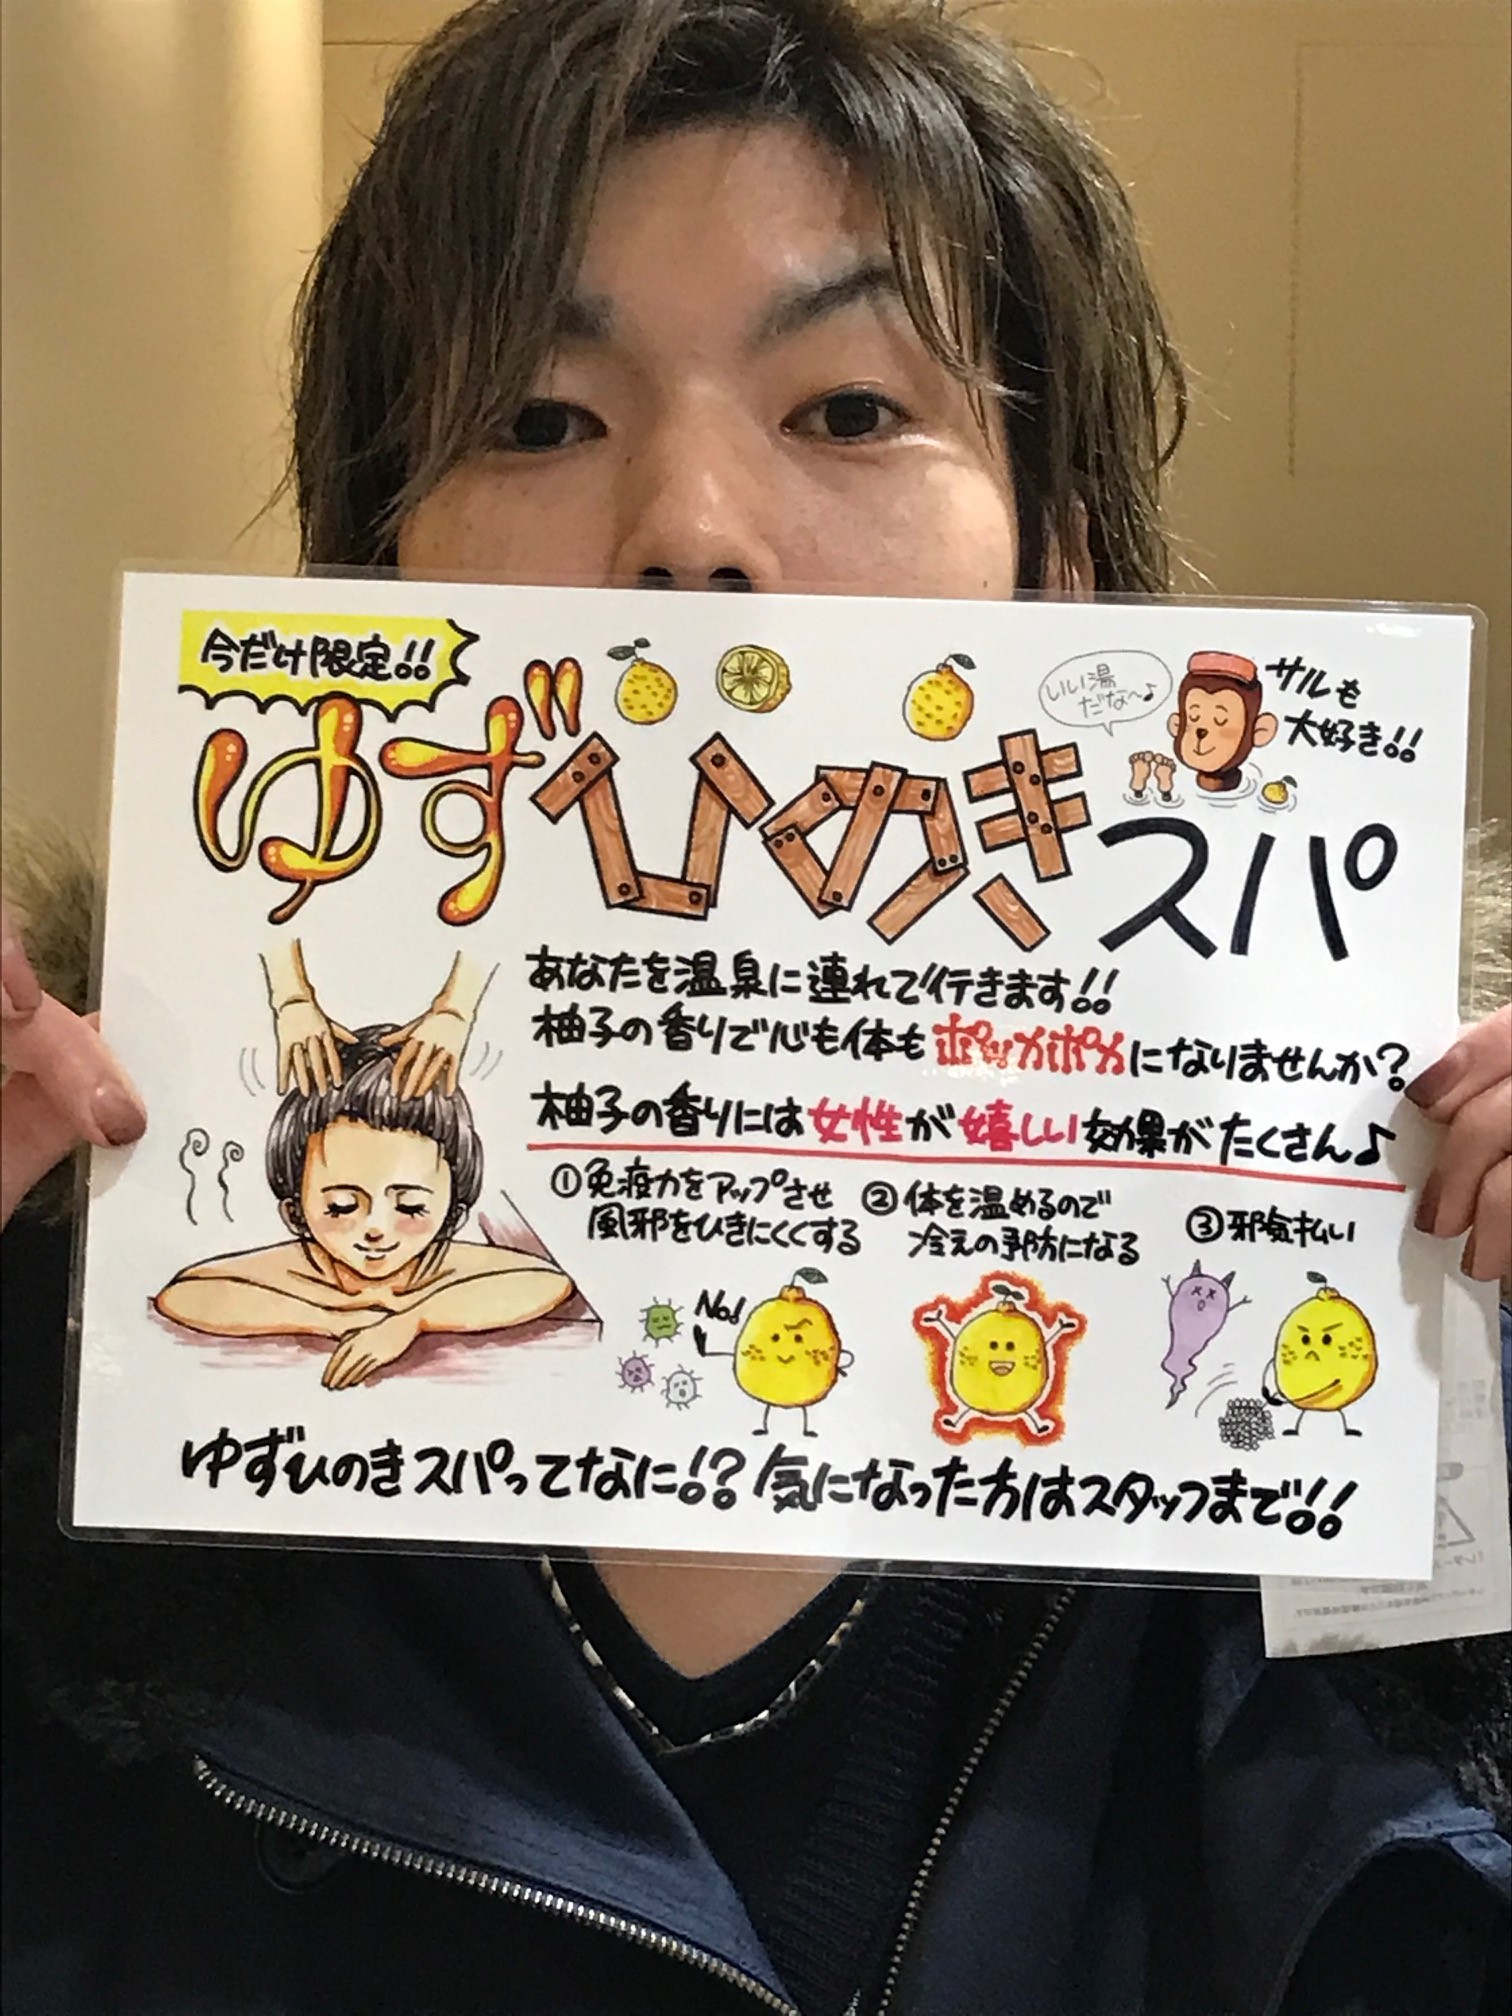 今だけ限定!!
ゆずひのきスパ
いい湯
だな〜♪
サルも
大好き!!
あなたを温泉に連れて行きます!!
柚子の香りで心も体もポッカポカになりませんか?
柚子の香りには女性が嬉しい効果がたくさん♪
①免疫力をアップさせ
風邪をひきにくくする
②体を温めるので
冷えの予防になる
③邪気払い
No!
ゆずひのきスパってなに!?気になった方はスタッフまで!!